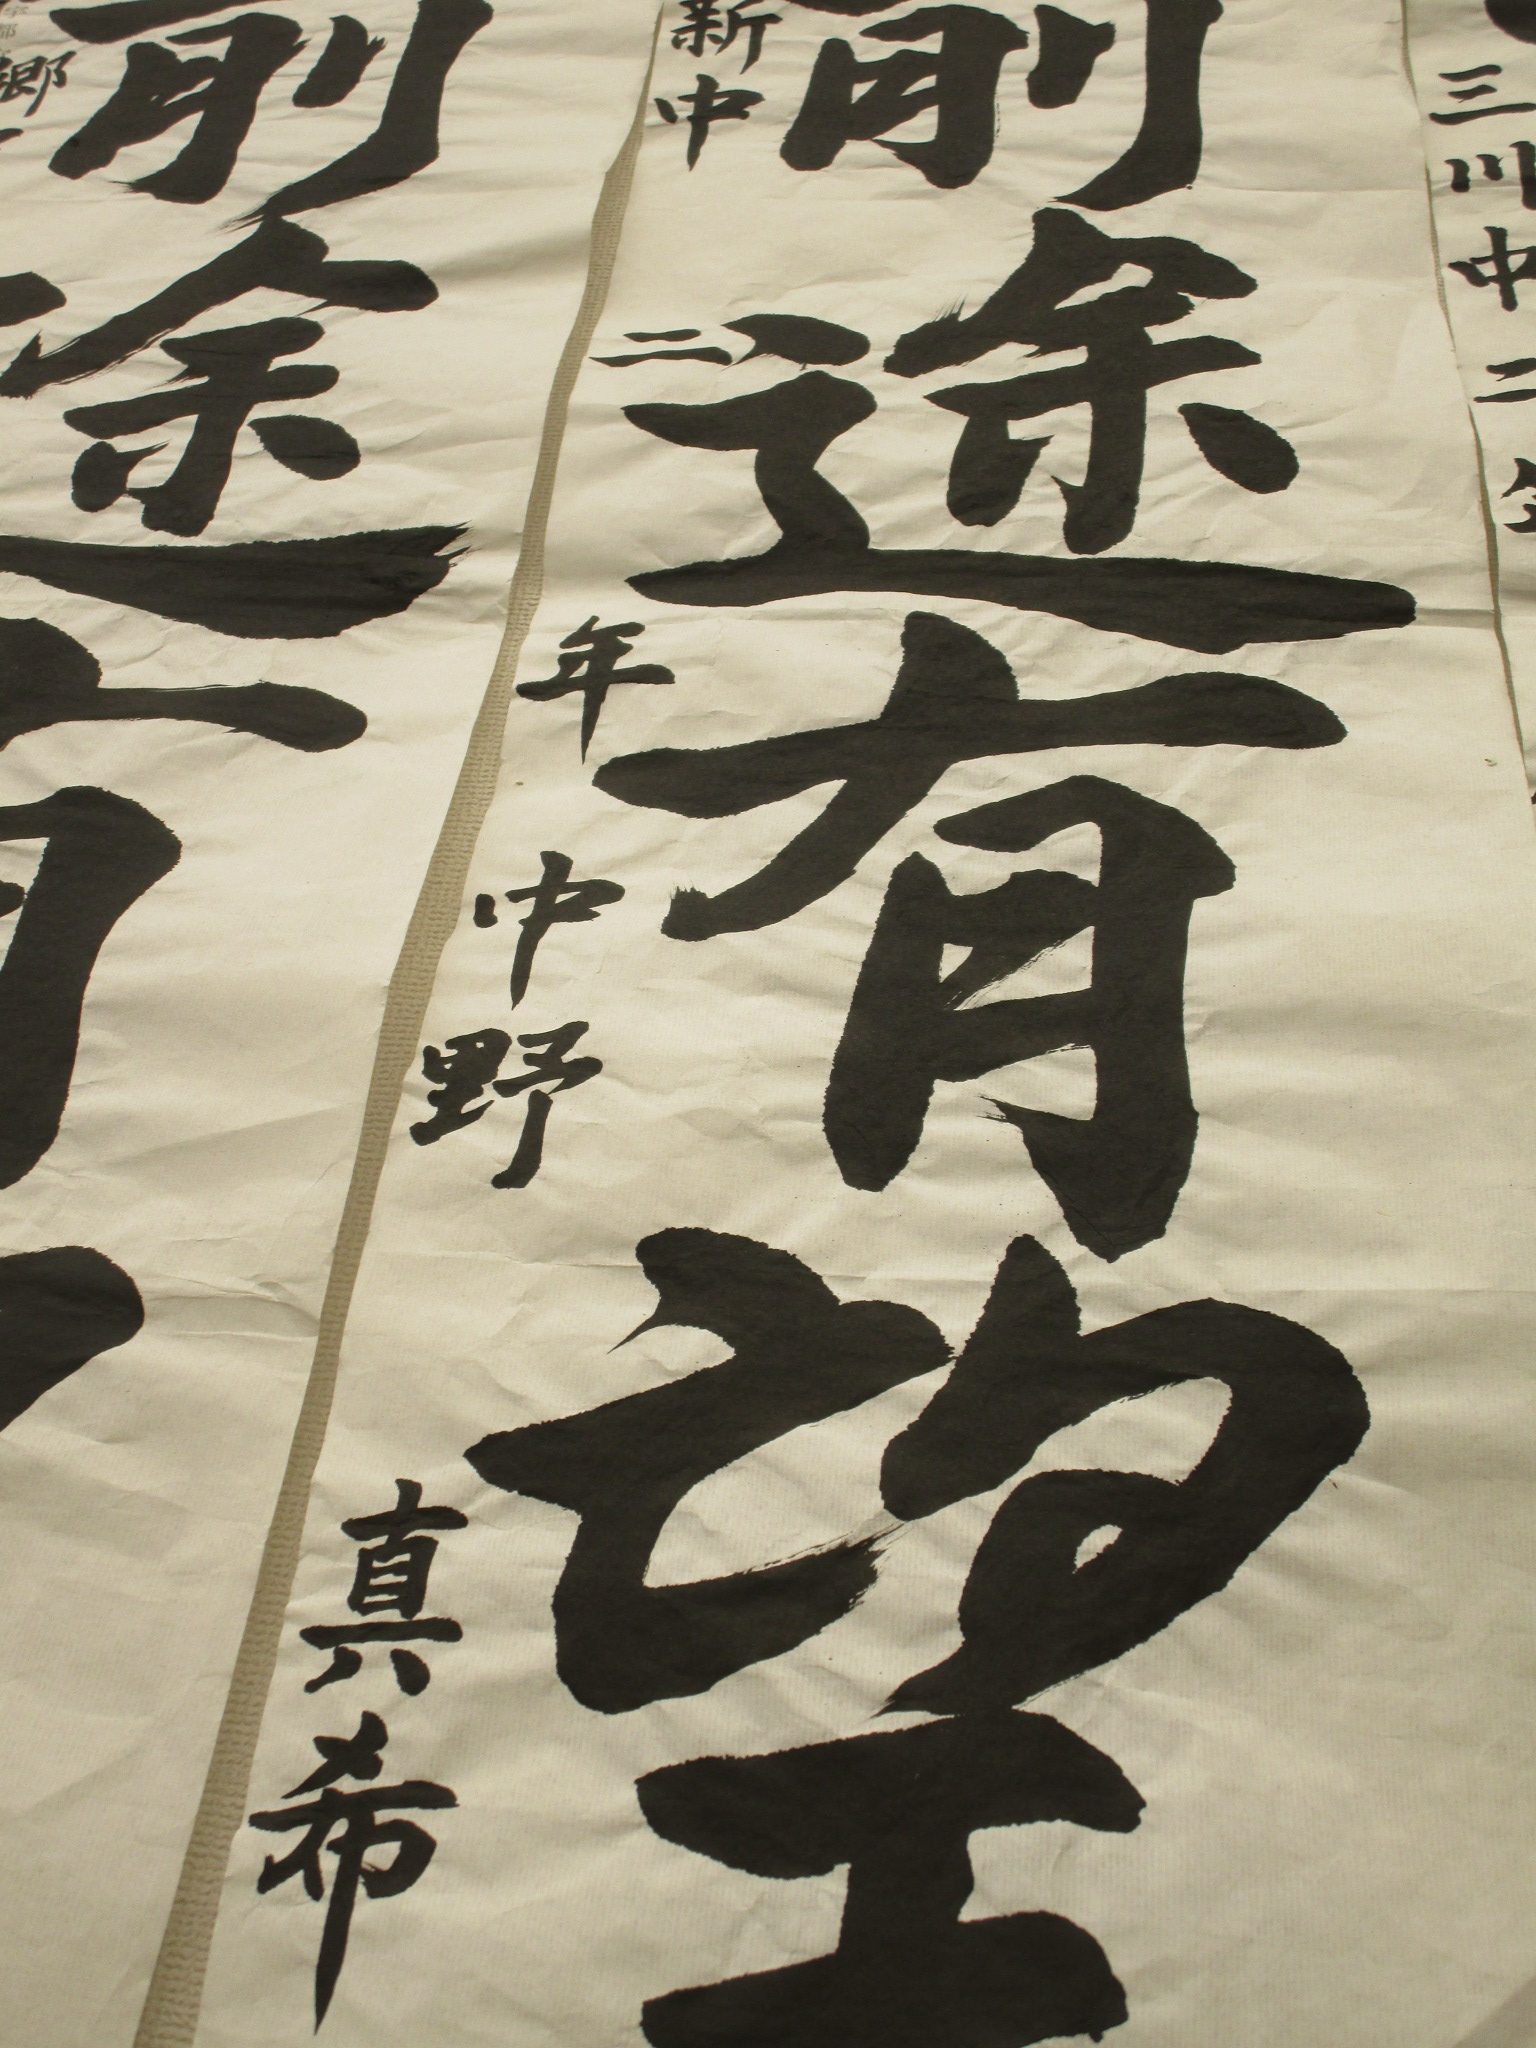 三川中二年
前途有望
新中二年中野真希
前途有
郷